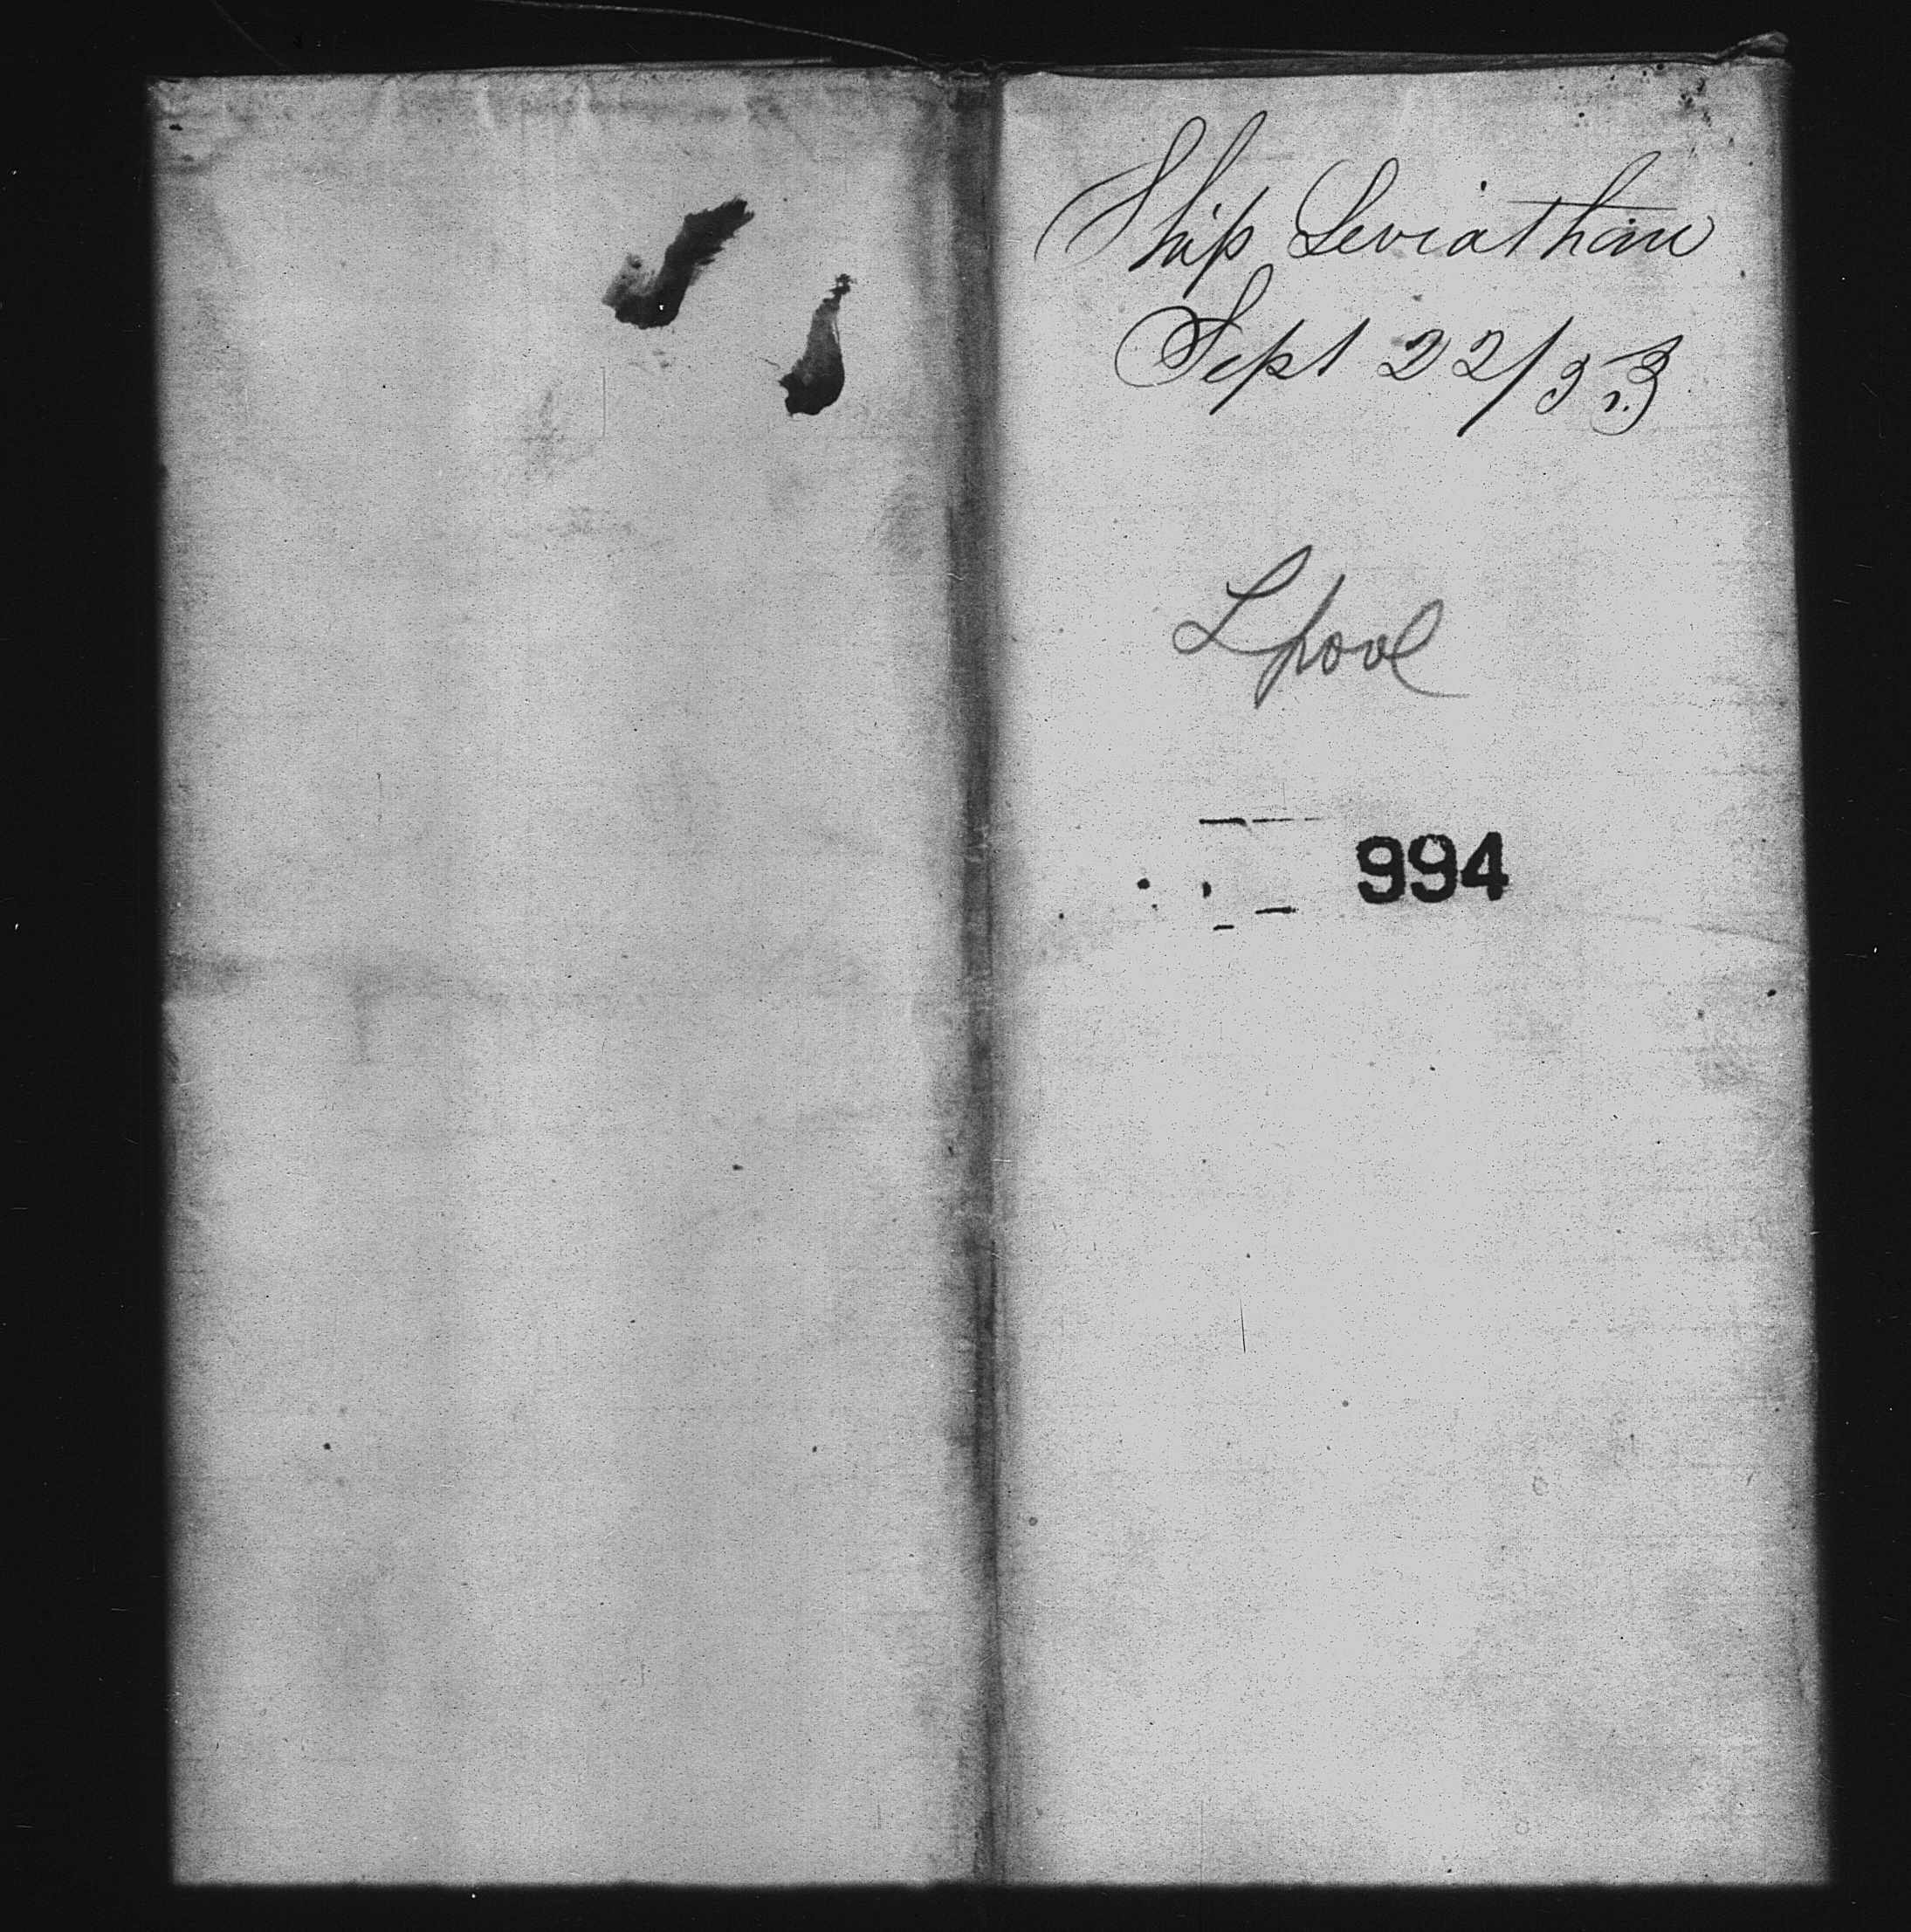 Ship Leviathan
Sept 22/53
Lpool
994